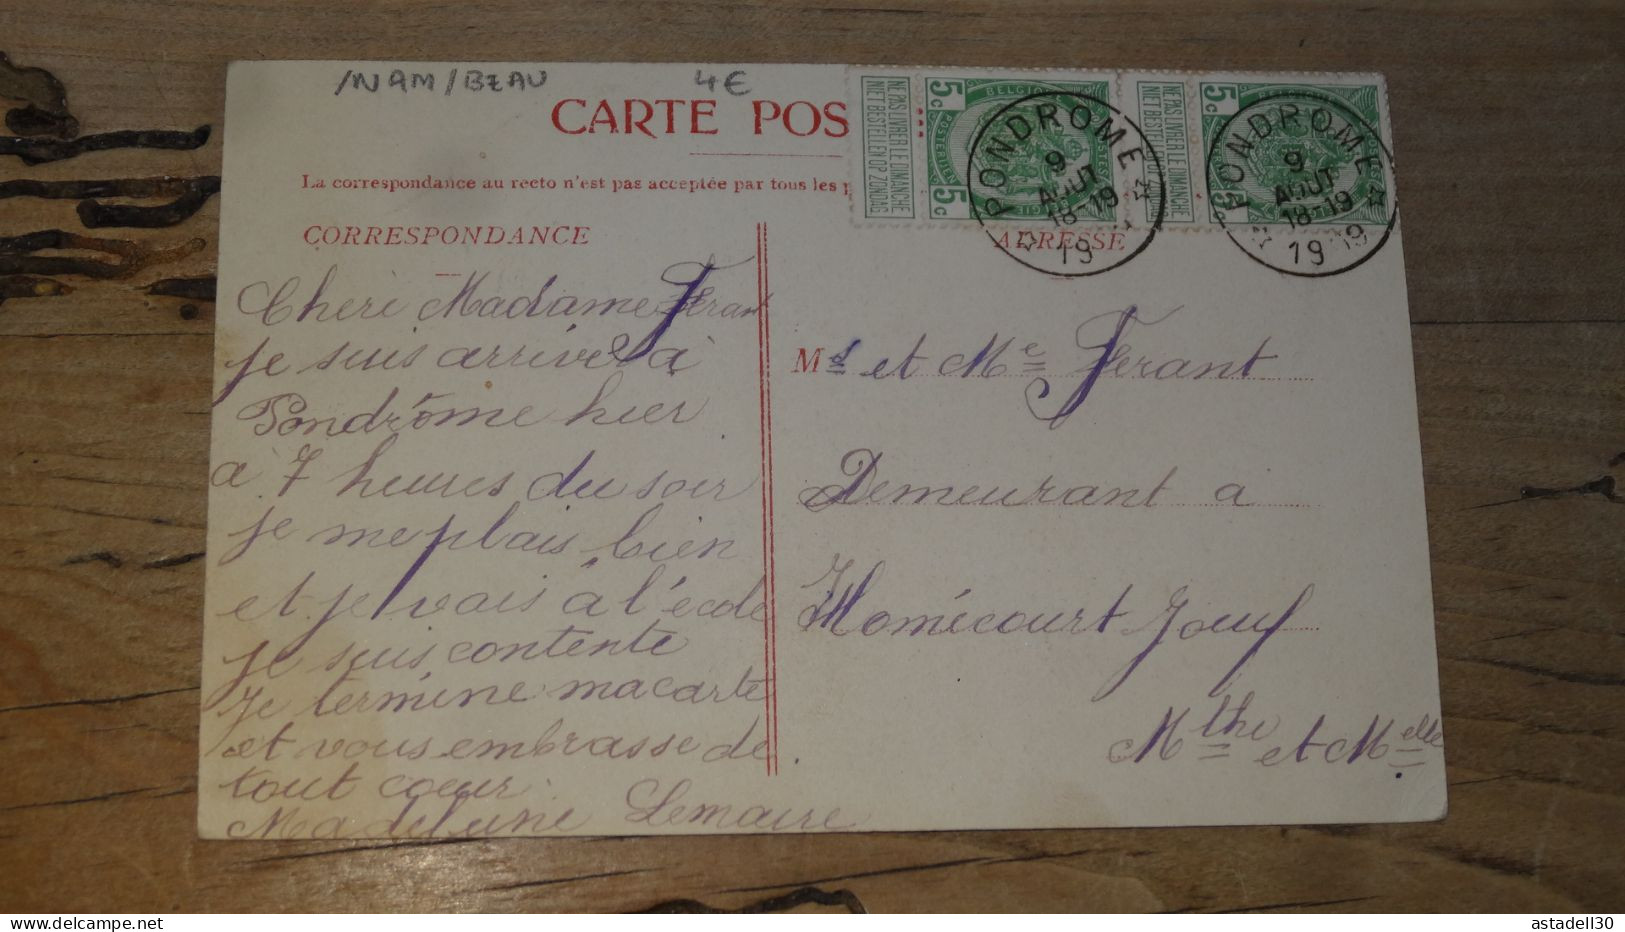 /NAM/BEAU 4€
CARTE POS
La correspondance au recto n'est pas acceptée par tous les p
CORRESPONDANCE
ADRESSE
NE PAS LIVRER LE DIMANCHE
NIET BESTELLEN OP ZONDAG
5c
BELGIQUE
POSTERIJEN
5c
NE PAS LIVRER LE DIMANCHE
NIET BESTELLEN OP ZONDAG
5c
PONDROME
9
AOUT
18-19
19
PONDROME
9
AOUT
18-19
19
Cheri Madame Ferant
je suis arrivée à
Pondrôme hier
a 7 heures du soir
je me plais bien
et je vais à l'école
je suis contente
Je termine ma carte
et vous embrasse de
tout coeur
Madeleine Lemaire
Mr et Me Ferant
Demeurant a
Homécourt Jouf
Mthe et Melle
astadell30